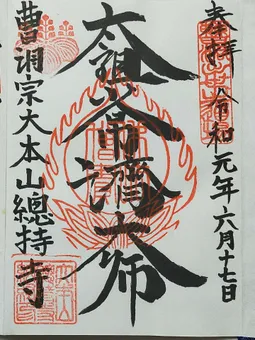 奉拝
令和元年六月十七日
太祖常済大師
曹洞宗大本山總持寺